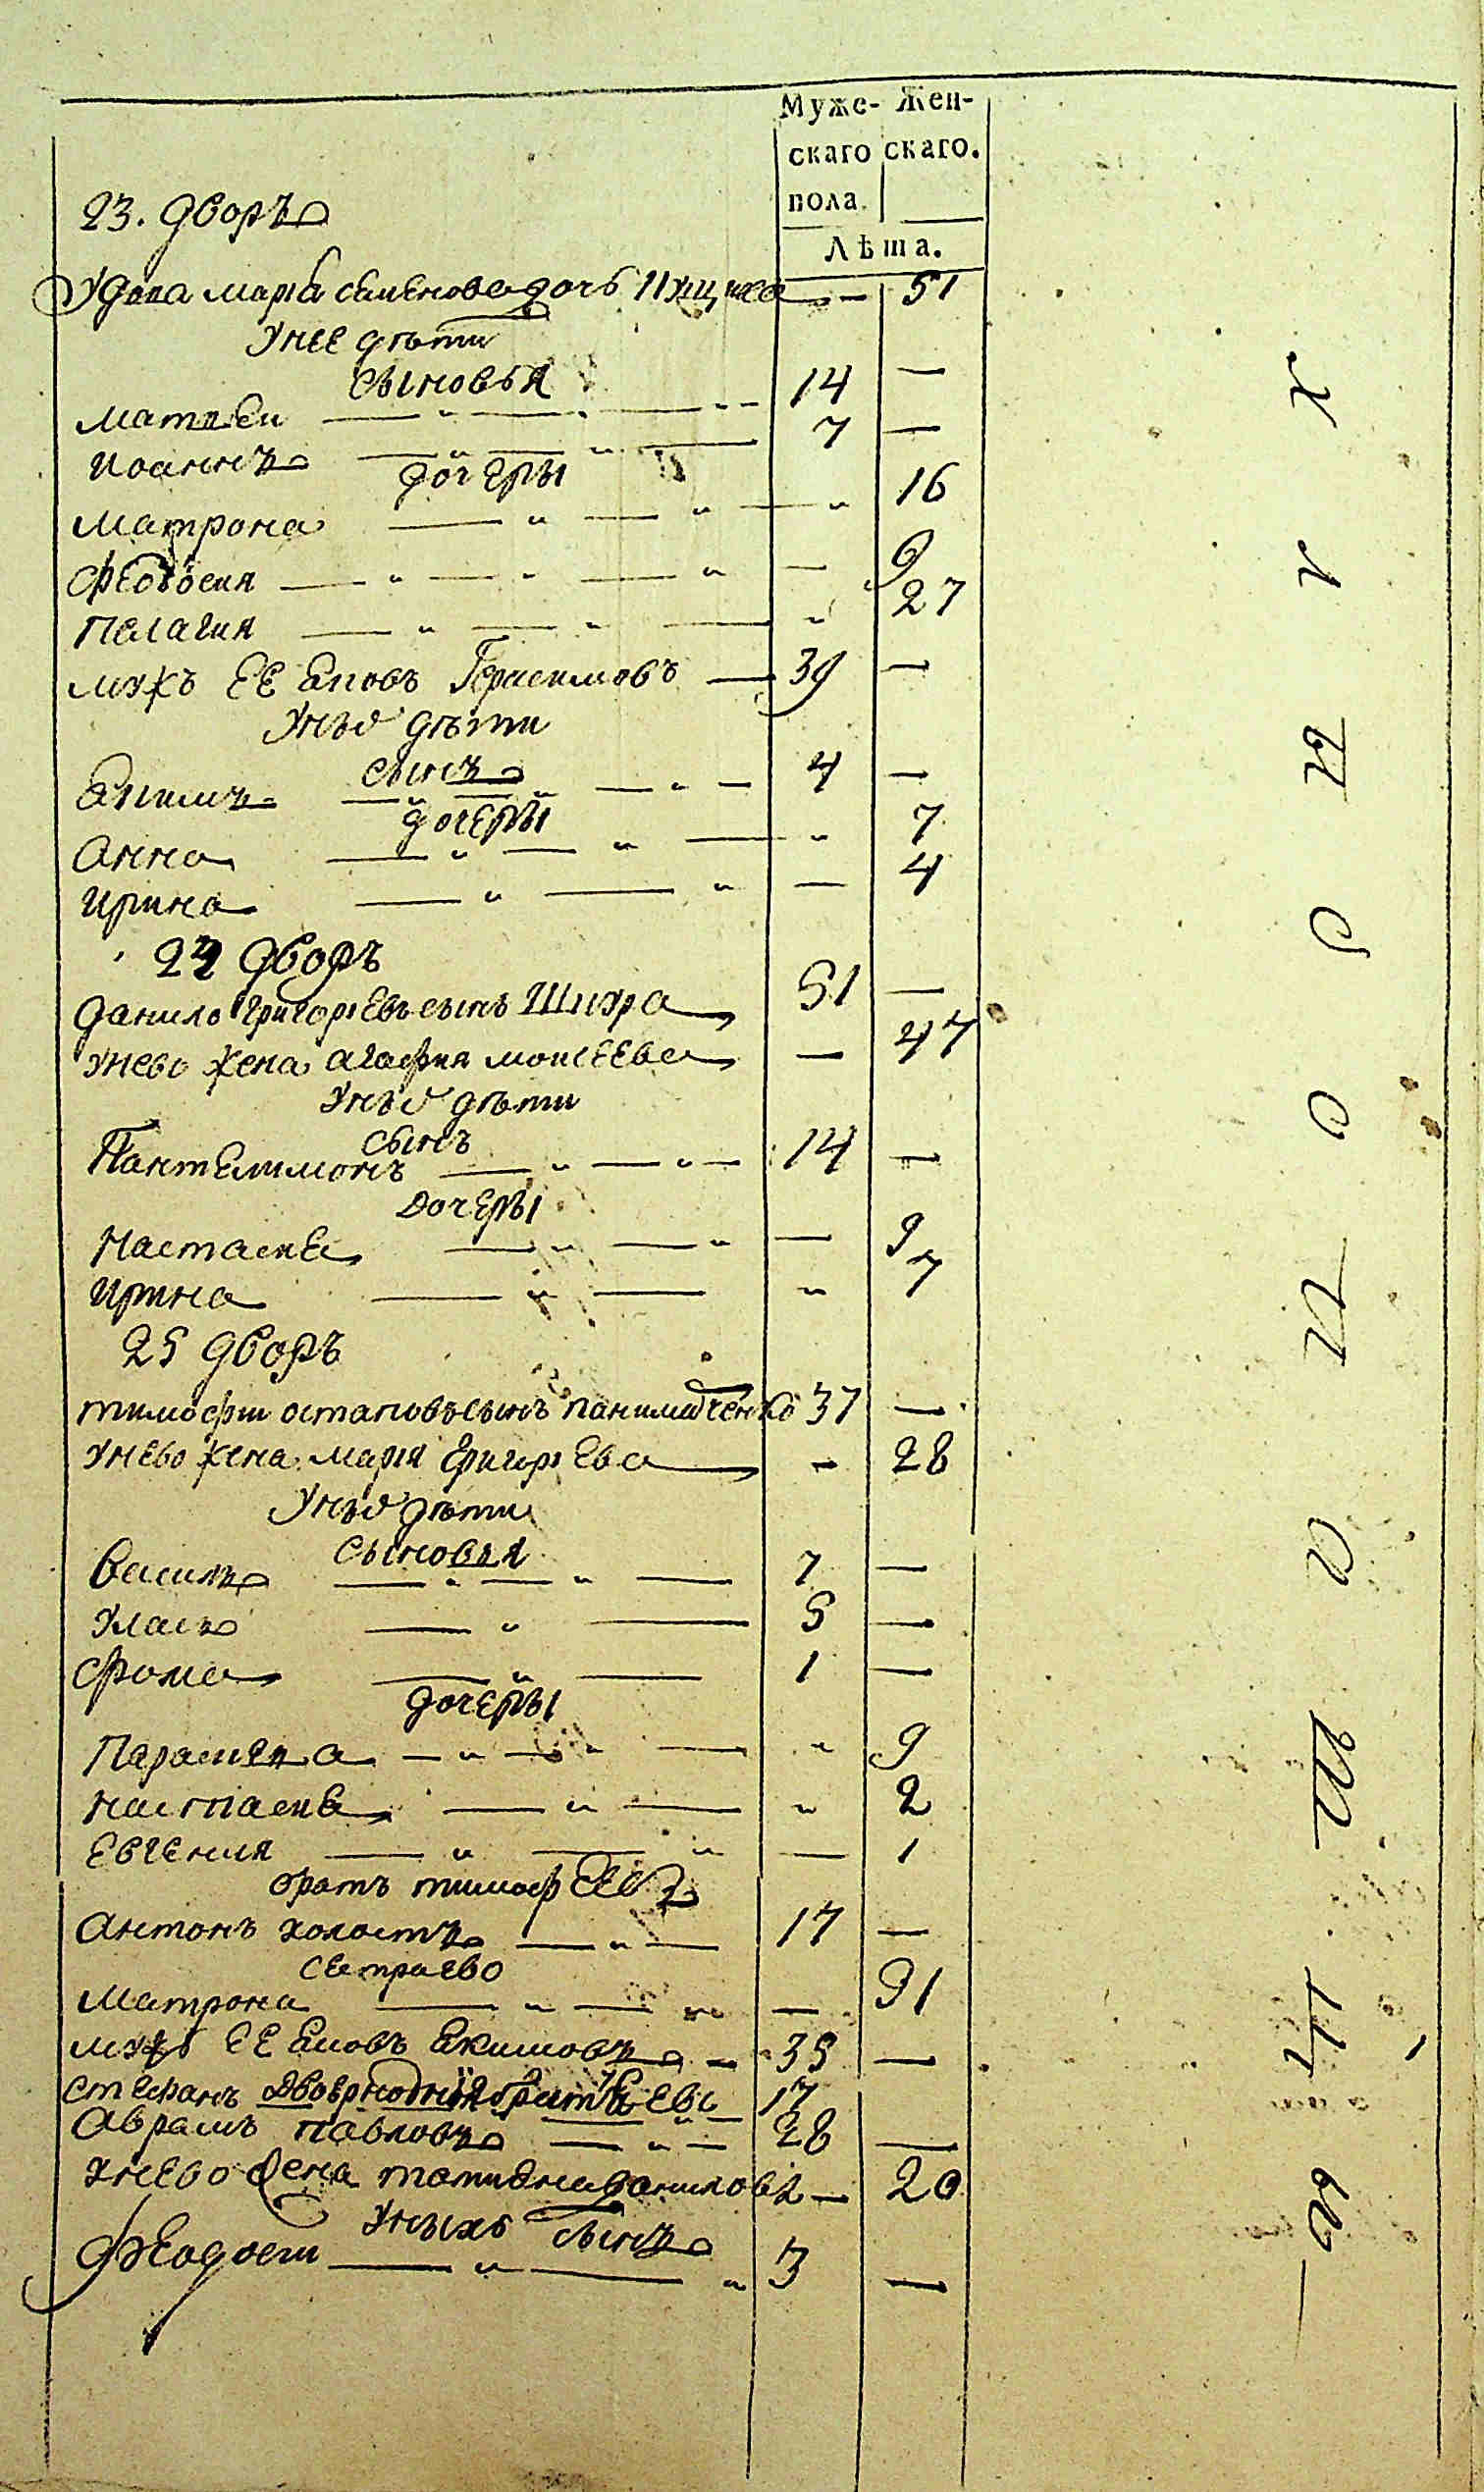 Муже- Жен-
скаго скаго.
пола
Лѣта.
23. дворъ
Удова марія семенова дочь — 51
У нее дѣти
сыновья
матвеи 14 —
иоаннъ 7 —
дочеры
матрона 16
феодосия — 9
пелагия 27
мужъ ее Яковъ Герасимовъ — 39 —
У нихъ дѣти
сынъ
Якимъ 4 —
дочеры
анна 7
ирина — 4
24 дворъ
данило григорiевъ сынъ Шихра 51 —
у нево жена агафия моисеева — 47
У нихъ дѣти
сынъ
Пантелимонъ 14 —
дочеры
настасия — 9
ирина 7
25 дворъ
тимофіи остаповъ сынъ 37 —
у нево жена марія григорiева — 28
У нихъ дѣти
сыновья
василь 7 —
уласъ 5 —
фома 1 —
дочеры
параскева 9
настасия 2
евгения — 1
братъ тимофеевъ
антонъ холостъ 17 —
сестра ево
матрона — 31
мужъ ее Яковъ Якимовъ 35 —
стефанъ двоюродный братъ ево 17
аврамъ павловъ 28 —
у нево жена данилова — 20
У нихъ сынъ
Феодоси 3 —